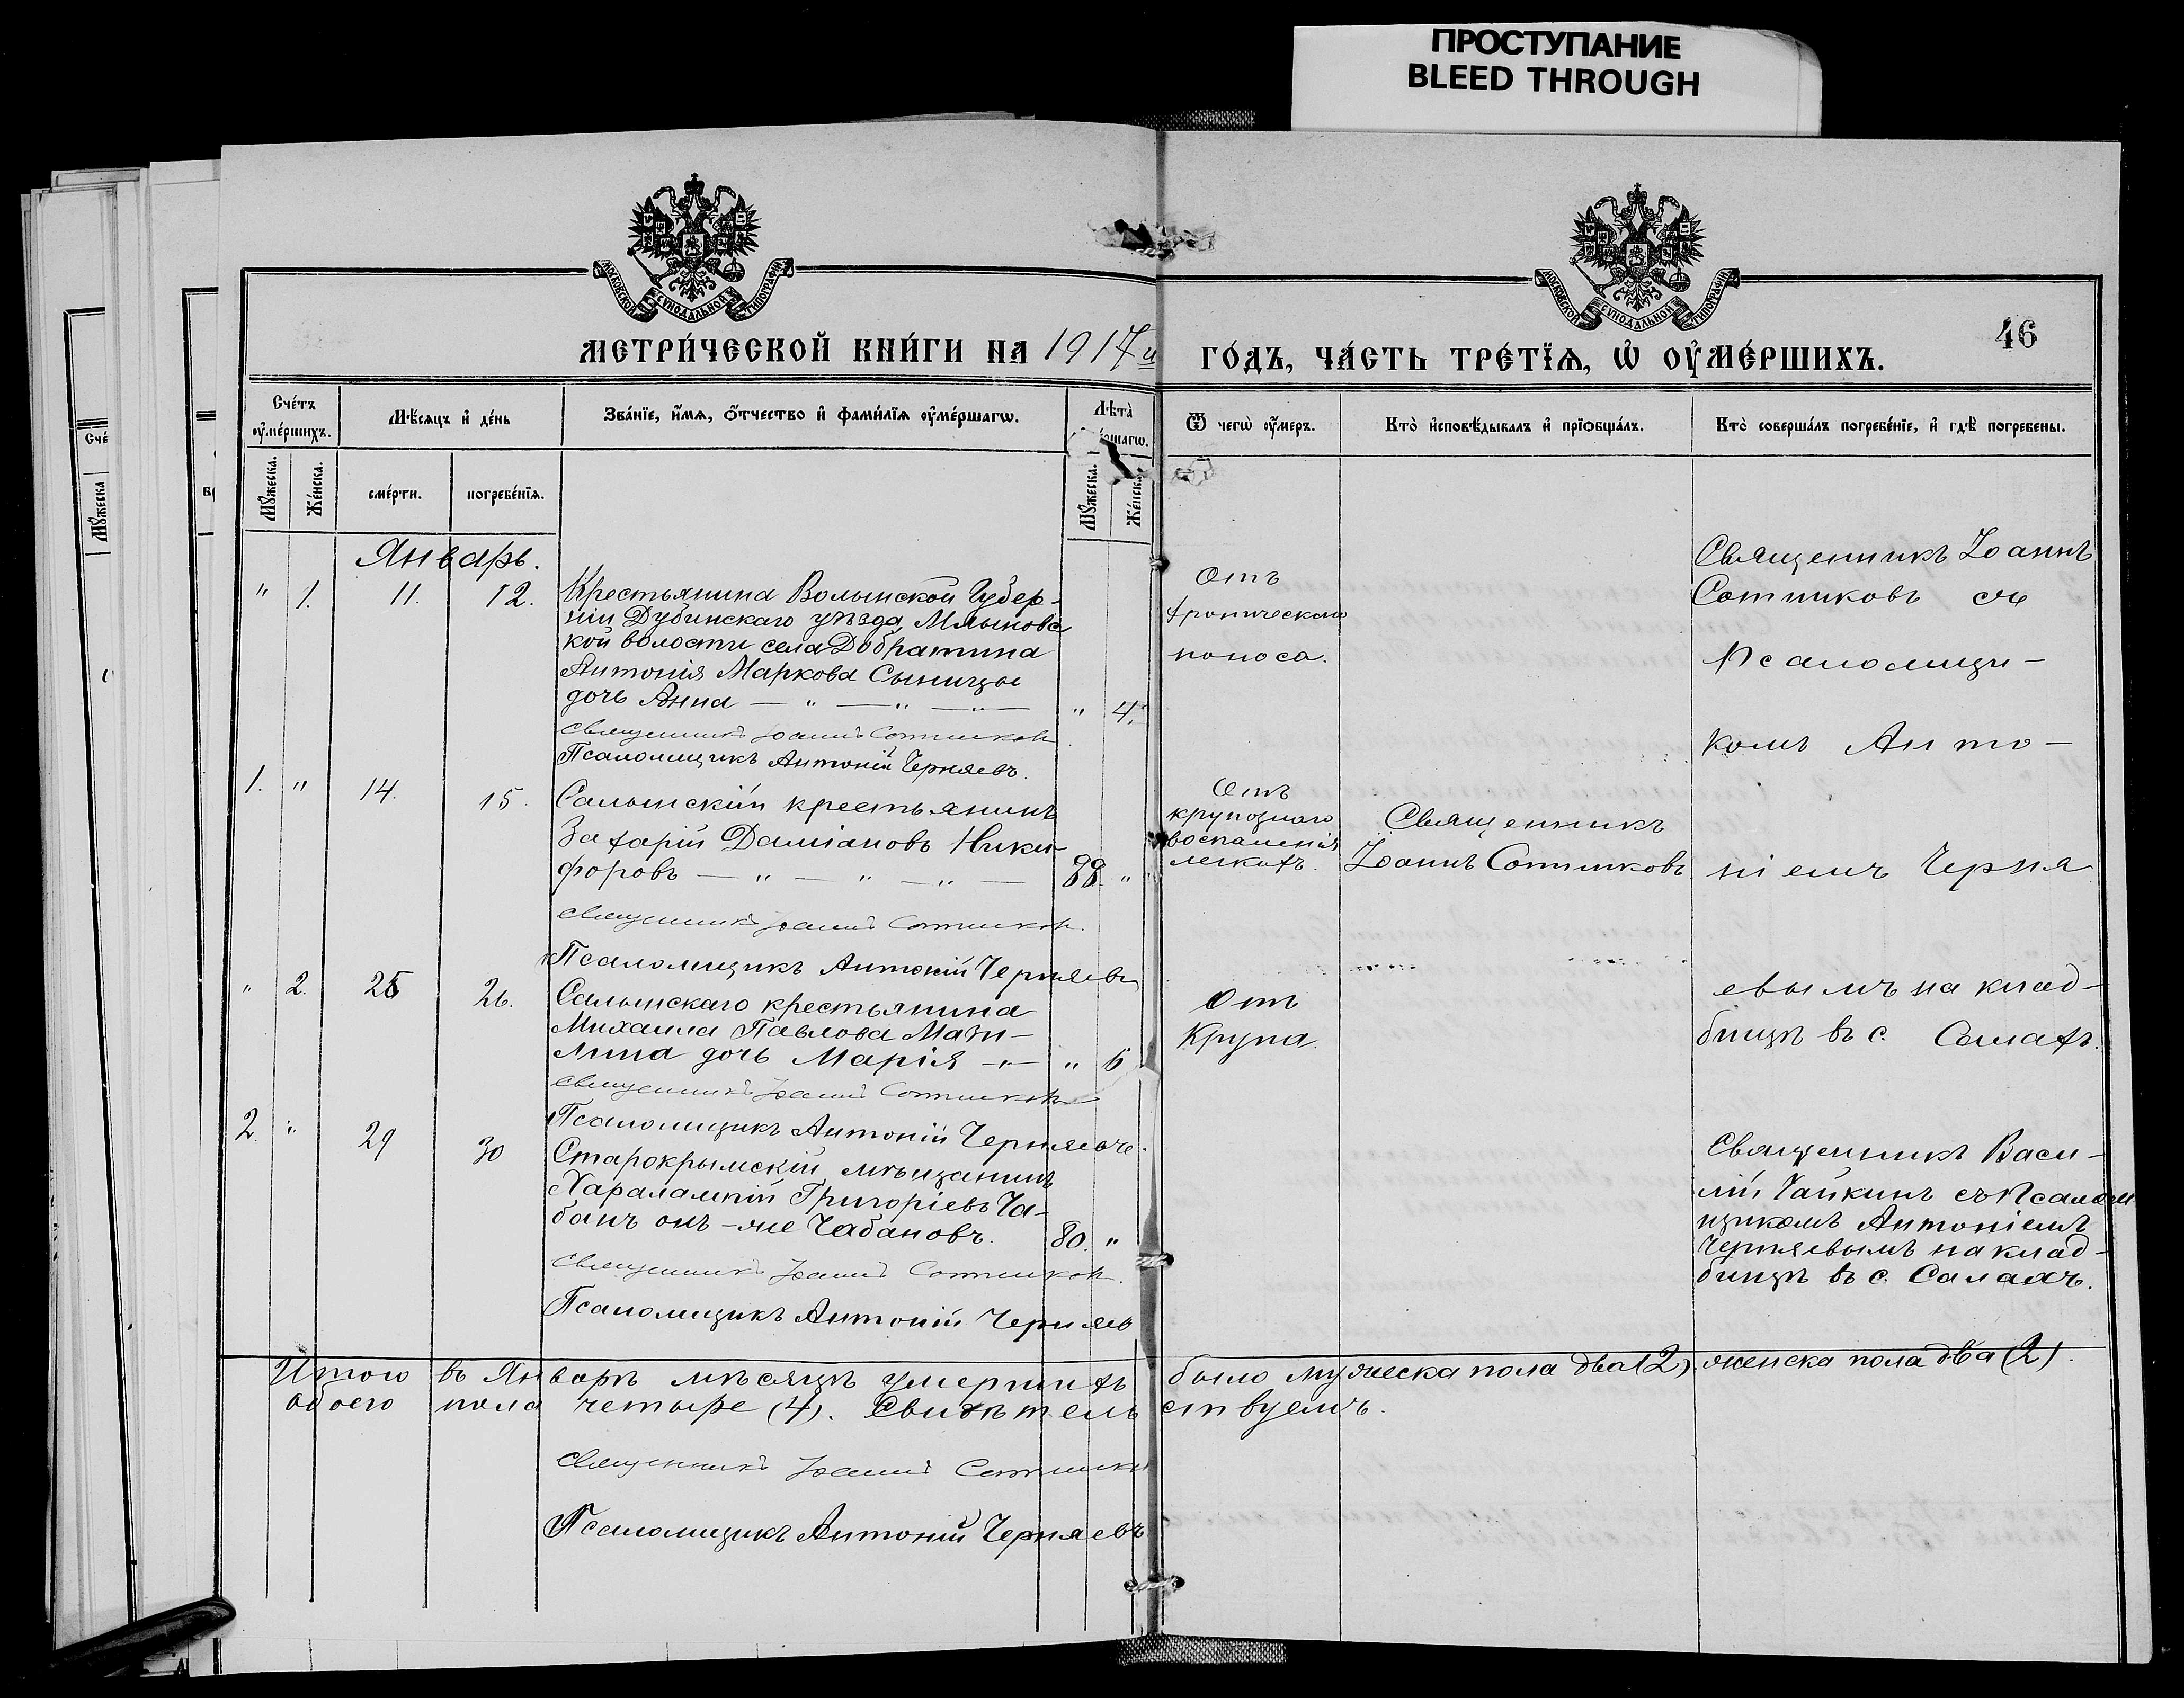 ПРОСТУПАНИЕ
BLEED THROUGH
МОСКОВСКОЙ СѴНОДАЛЬНОЙ ТИПОГРАФІИ
МОСКОВСКОЙ СѴНОДАЛЬНОЙ ТИПОГРАФІИ
46
МЕТРИ́ЧЕСКОЙ КНИ́ГИ НА 1917й ГО́ДЪ, ЧА́СТЬ ТРЕ́ТЇѦ, Ѡ҆ ОУ҆МЕ́РШИХЪ.
Сче́тъ оу҆ме́ршихъ.
Мѣ́сяцъ и҆ де́нь
Зва́нїе, и҆́мѧ, ѻ҆́тчество и҆ фами́лїѧ оу҆ме́ршагѡ.
Лѣ́та̀ ршагѡ.
Ѿ чегѡ̀ оу҆́меръ.
Кто̀ и҆сповѣ́дывалъ и҆ прїѻбща́лъ.
Кто̀ соверша́лъ погребе́нїе, и҆ гдѣ̀ погребены.
Мꙋ́жеска.
Же́нска.
сме́рти.
погребе́нїѧ.
Мꙋ́жеска.
Же́нска.
Январь.
" 1. 11. 12.
Крестьянина Волынской Губер-
ніи Дубинскаго уѣзда, Млыновс
кой волости села Добратина
Антонія Маркова Сыницы
дочь Анна — " — " — " — " 4.
Священникъ Іоаннъ Сотников
Псаломщикъ Антоній Черняевъ.
Отъ
хроническаго
поноса.
Священникъ Іоаннъ
Сотниковъ съ
Псаломщи-
комъ Анто-
ніемъ Черня
евымъ на клад-
бищѣ въ с. Салахъ.
1. " 14. 15.
Салынскій крестьянинъ
Захарій Даміановъ Ники-
форовъ — " — " — " — 88. "
Священникъ Іоаннъ Сотников.
Псаломщикъ Антоній Черняевъ
Отъ
крупознаго
воспаленія
легкихъ.
Священникъ
Іоаннъ Сотниковъ
" 2. 25 26.
Салынскаго крестьянина
Михаила Павлова Мати-
лина дочь Марія — " — " 6
Священникъ Іоаннъ Сотников
Псаломщикъ Антоній Черняевъ.
Отъ
Крупа.
2. " 29 30
Старокрымскій мѣщанинъ
Харалампій Григоріевъ Ча-
банъ онъ-же Чабановъ. 80. "
Священникъ Іоаннъ Сотников.
Псаломщикъ Антоній Черняев
Священникъ Васи-
лій Чайкинъ съ Псалом
щикомъ Антоніемъ
Черняевымъ на клад-
бищѣ въ с. Салахъ.
Итого въ Январѣ мѣсяцѣ умершихъ было мужеска пола два (2), женска пола два (2).
обоего пола четыре (4). Свидѣтельствуемъ.
Священникъ Іоаннъ Сотников
Псаломщикъ Антоній Черняевъ